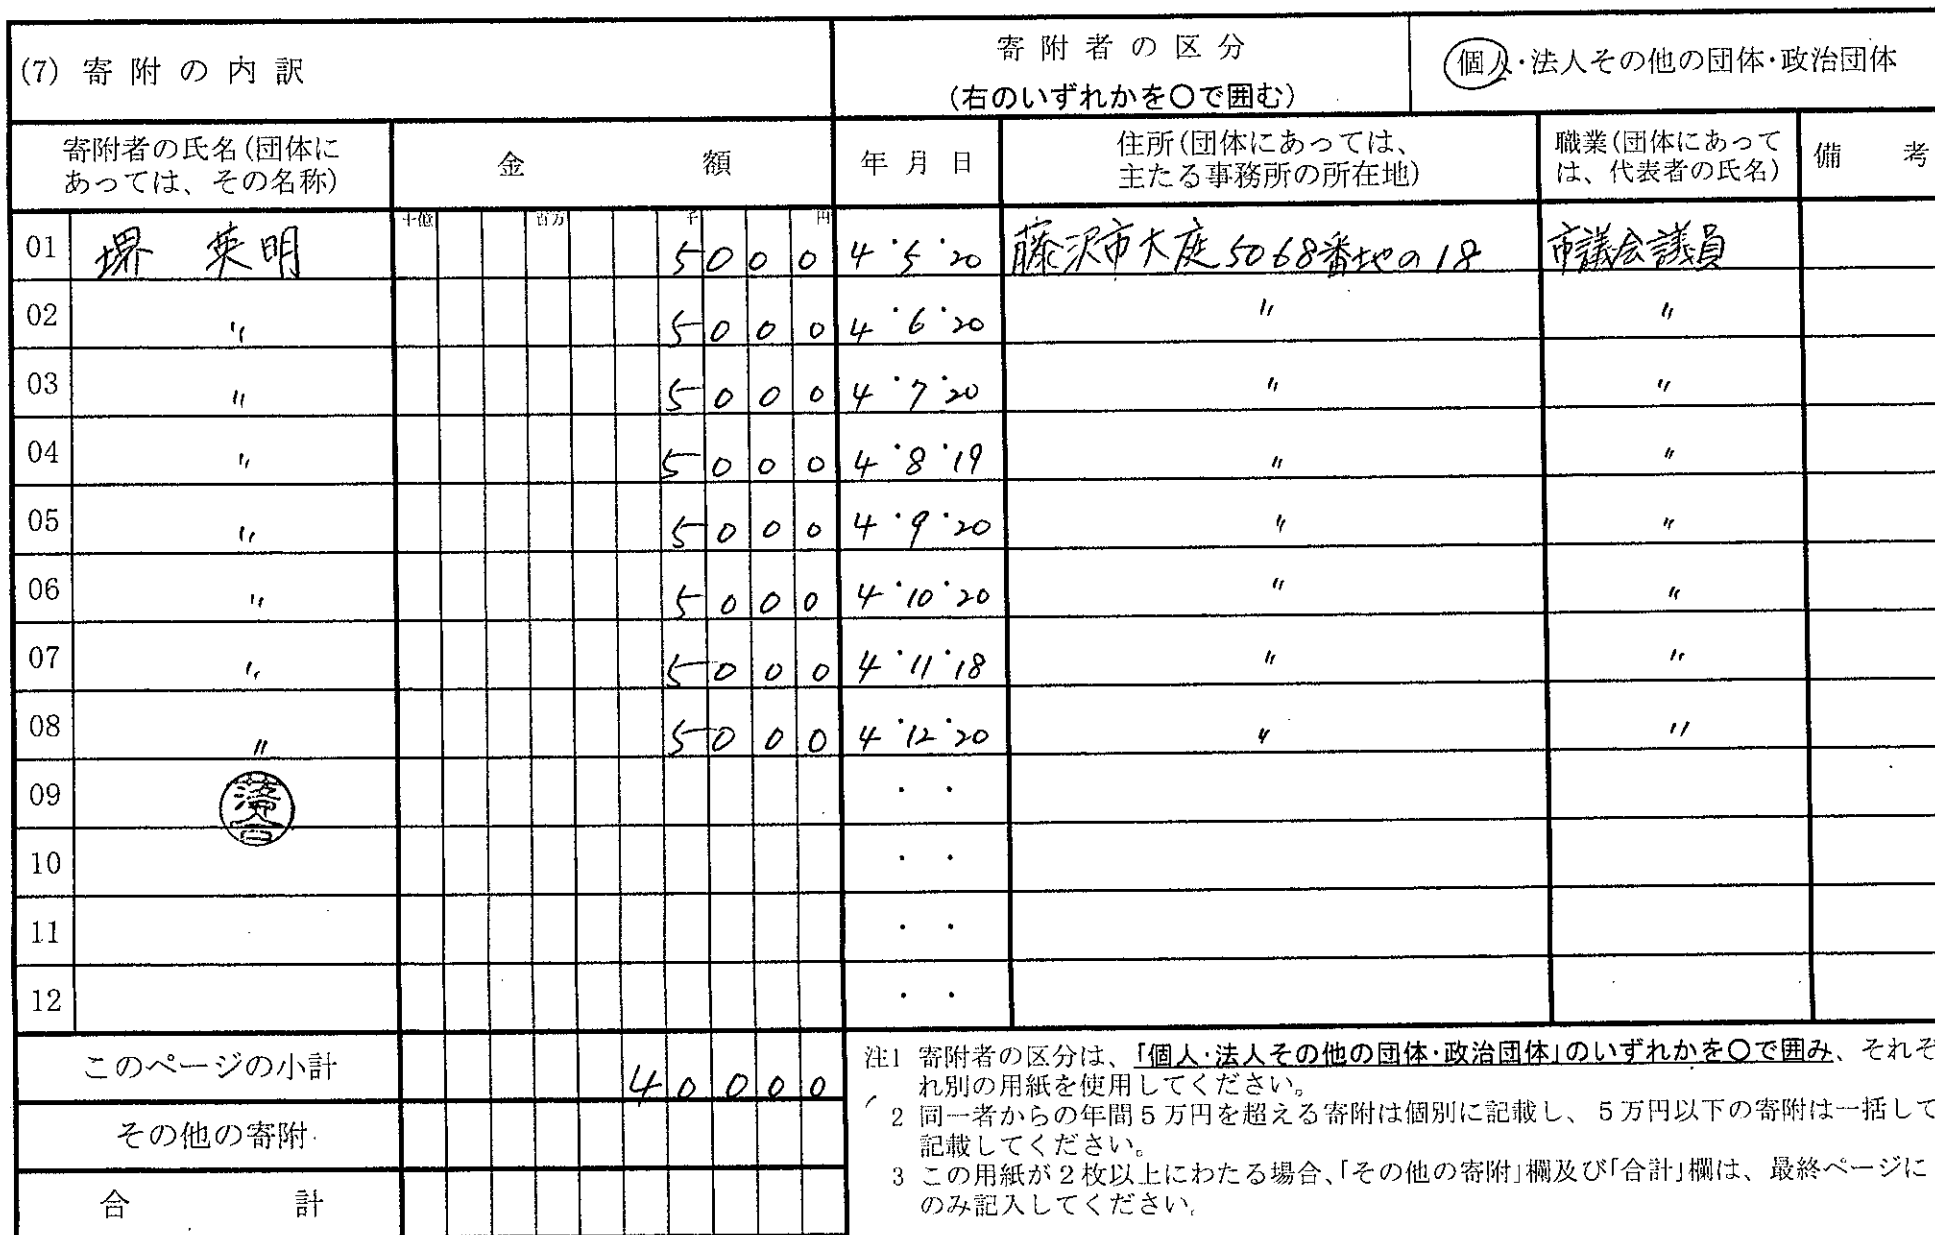 (7) 寄附の内訳
寄附者の区分
(右のいずれかを○で囲む)
個人・法人その他の団体・政治団体
寄附者の氏名(団体に
あっては、その名称)
金額
年月日
住所(団体にあっては、
主たる事務所の所在地)
職業(団体にあって
は、代表者の氏名)
備考
十億 百万 千 円
01 堺 英明 5000 4・5・20 藤沢市大庭5068番地の18 市議会議員
02 〃 5000 4・6・20 〃 〃
03 〃 5000 4・7・20 〃 〃
04 〃 5000 4・8・19 〃 〃
05 〃 5000 4・9・20 〃 〃
06 〃 5000 4・10・20 〃 〃
07 〃 5000 4・11・18 〃 〃
08 〃 5000 4・12・20 〃 〃
09 落合 ・ ・
10 ・ ・
11 ・ ・
12 ・ ・
このページの小計 40000
その他の寄附
合計
注1 寄附者の区分は、「個人・法人その他の団体・政治団体」のいずれかを○で囲み、それぞ
れ別の用紙を使用してください。
2 同一者からの年間5万円を超える寄附は個別に記載し、5万円以下の寄附は一括して
記載してください。
3 この用紙が2枚以上にわたる場合、「その他の寄附」欄及び「合計」欄は、最終ページに
のみ記入してください。